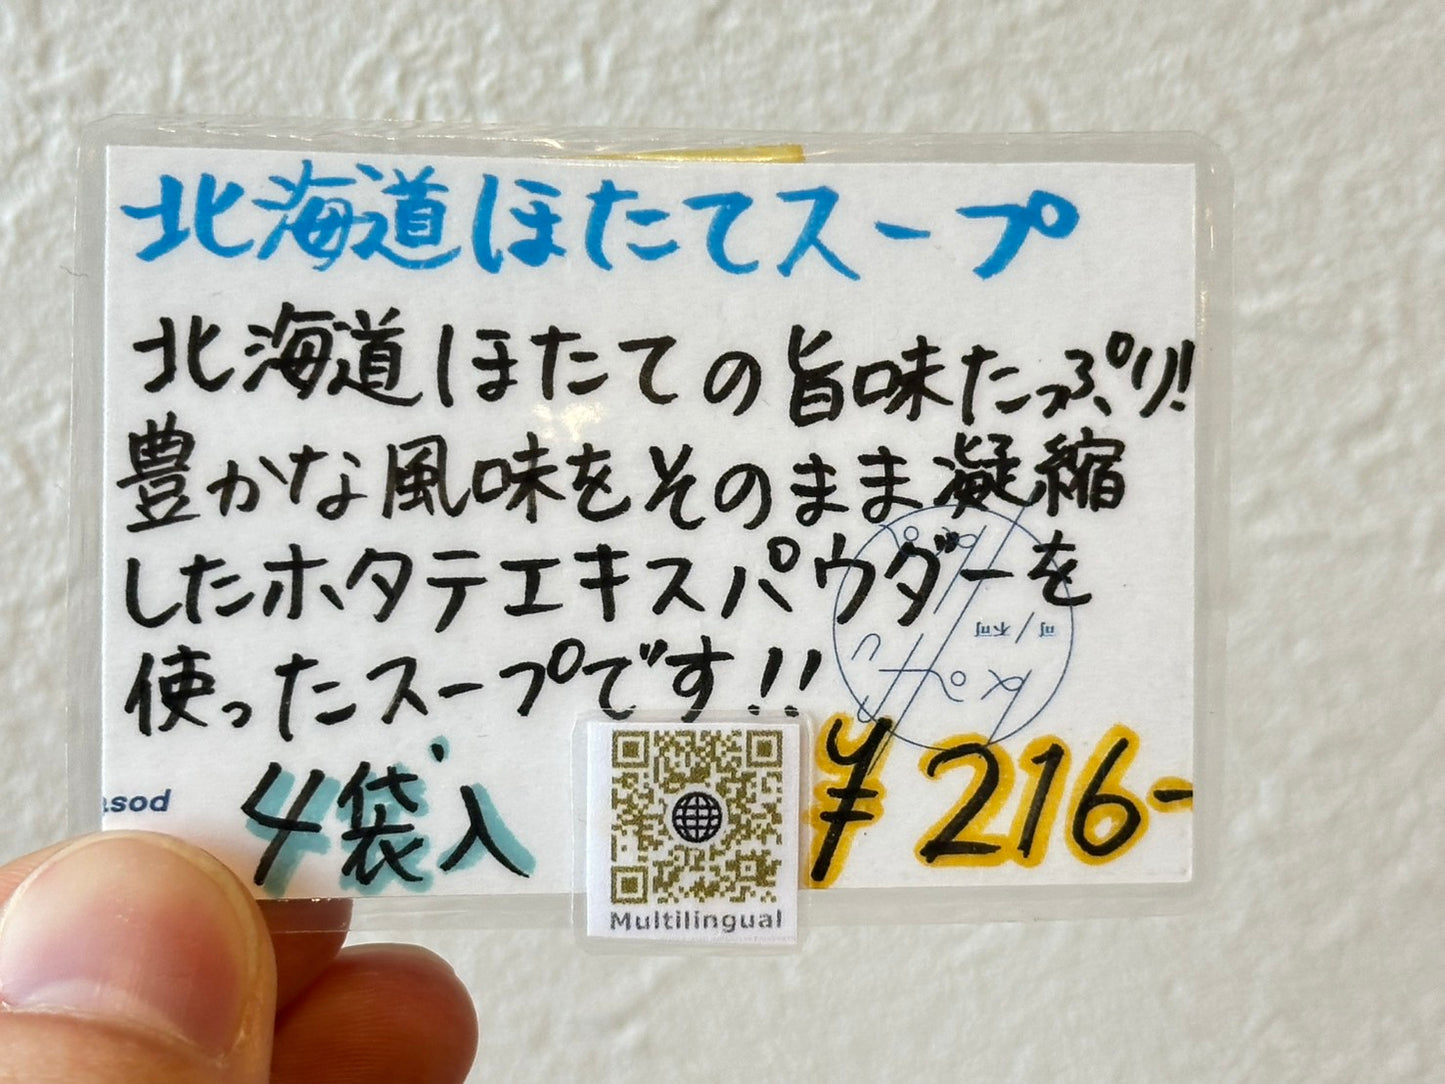 北海道ほたてスープ
北海道ほたての旨味たっぷり!
豊かな風味をそのまま凝縮
したホタテエキスパウダーを
使ったスープです!!
4袋入
¥216-
sod
Multilingual